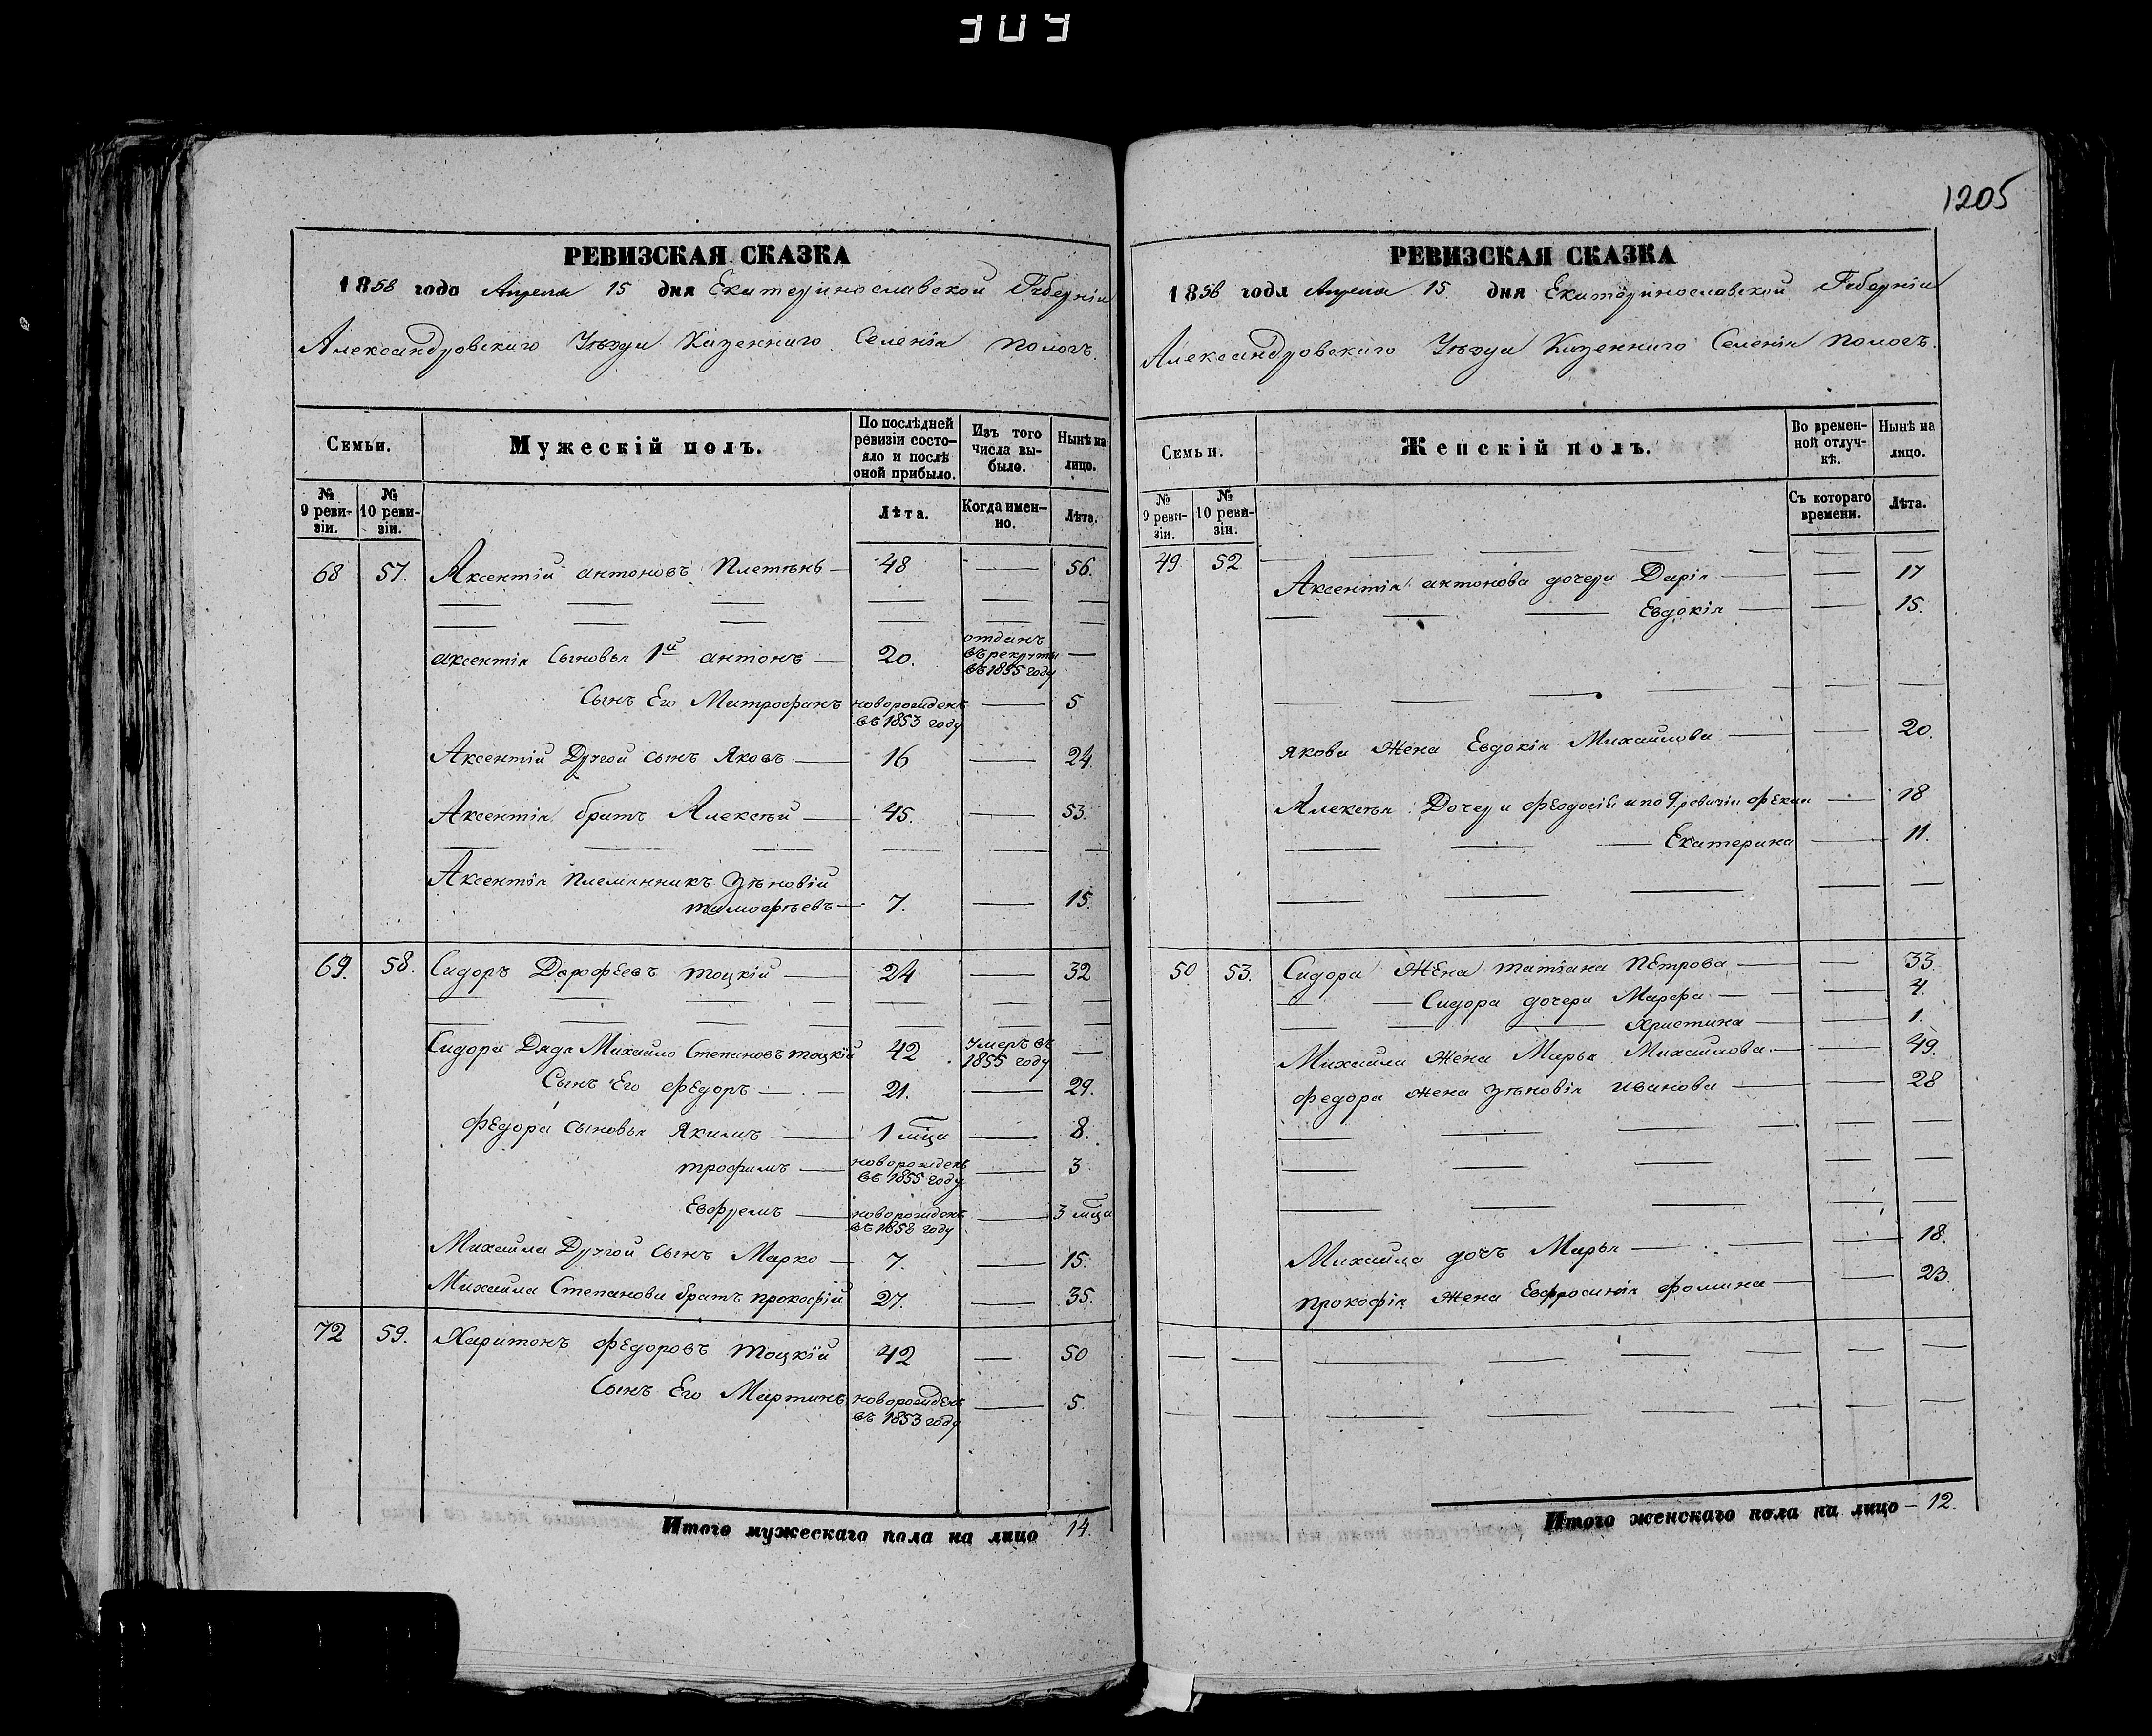 309
РЕВИЗСКАЯ СКАЗКА
1858 года Апреля 15 дня Екатеринославской Губерніи
Александровского Уѣзда Казенного Селенія Пологъ.
Семьи.
Мужескій полъ.
По послѣдней ревизіи состояло и послѣ оной прибыло.
Изъ того числа выбыло.
Нынѣ на лицо.
№ 9 ревизіи.
№ 10 ревизіи.
Лѣта.
Когда именно.
Лѣта.
68 57. Аксентій антоновъ Плетѣнь — 48 — 56.
аксентія Сыновья 1й антонъ — 20. отданъ въ рекруты въ 1855 году —
Сынъ Его Митрофанъ новорожденъ въ 1853 году — 5
Аксентій Другой сынъ Яковъ — 16 — 24.
Аксентія братъ Алексѣй — 45. — 53.
Аксентія племянникъ Зѣновій
тимофѣевъ — 7. — 15.
69. 58. Сидоръ Дорофеевъ тоцкій — 24 — 32
Сидора Дядя Михайло Степановъ тоцкій 42 умеръ въ 1855 году —
Сынъ Его Федоръ — 21. — 29.
Федора сыновья Якимъ — 1 мца — 8.
трофимъ — новорожденъ въ 1855 году — 3
Ефремъ — новорожденъ въ 1858 году — 3 мца
Михаила Другой сынъ Марко — 7. — 15.
Михаила Степанова братъ прокофій 27. — 35.
72 59. Харитонъ Федоровъ тоцкій 42 — 50
Сынъ Его Мартинъ новорожденъ въ 1853 году — 5.
Итого мужескаго пола на лицо 14.
1205
РЕВИЗСКАЯ СКАЗКА
1858 года Апреля 15 дня Екатеринославской Губерніи
Александровского Уѣзда Казенного Селенія Пологъ.
Семьи.
Женскій полъ.
Во временной отлучкѣ.
Нынѣ на лицо.
№ 9 ревизіи.
№ 10 ревизіи.
Съ котораго времени.
Лѣта.
49 52 Аксентія антонова дочери Дарія — — 17
Евдокія — — 15.
якова жена Евдокія Михайлова — — 20.
Алексѣя Дочери Феодосія а по 9. ревизіи — 18
Екатерина — 11.
50 53. Сидора жена татіана петрова — — 33.
Сидора дочери Марфа — — 4.
христина — — 1.
Михаила жена Марья Михайлова — — 49.
федора жена зѣновія иванова — — 28
Михаила дочь Марья — — 18.
прокофія жена Евфросинія фомина — — 23.
Итого женскаго пола на лицо — 12.